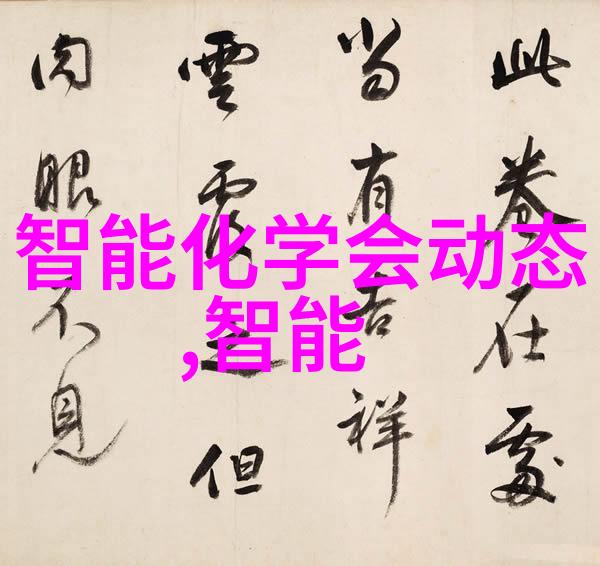 智能化学会动态
,智能
此卷在處
當有吉祥
雲覆之但
肉眼不見